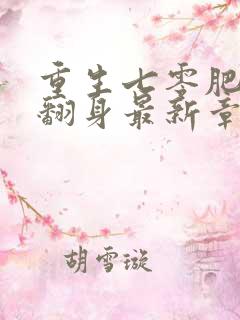 重生七零肥
翻身最新章
胡雪璇